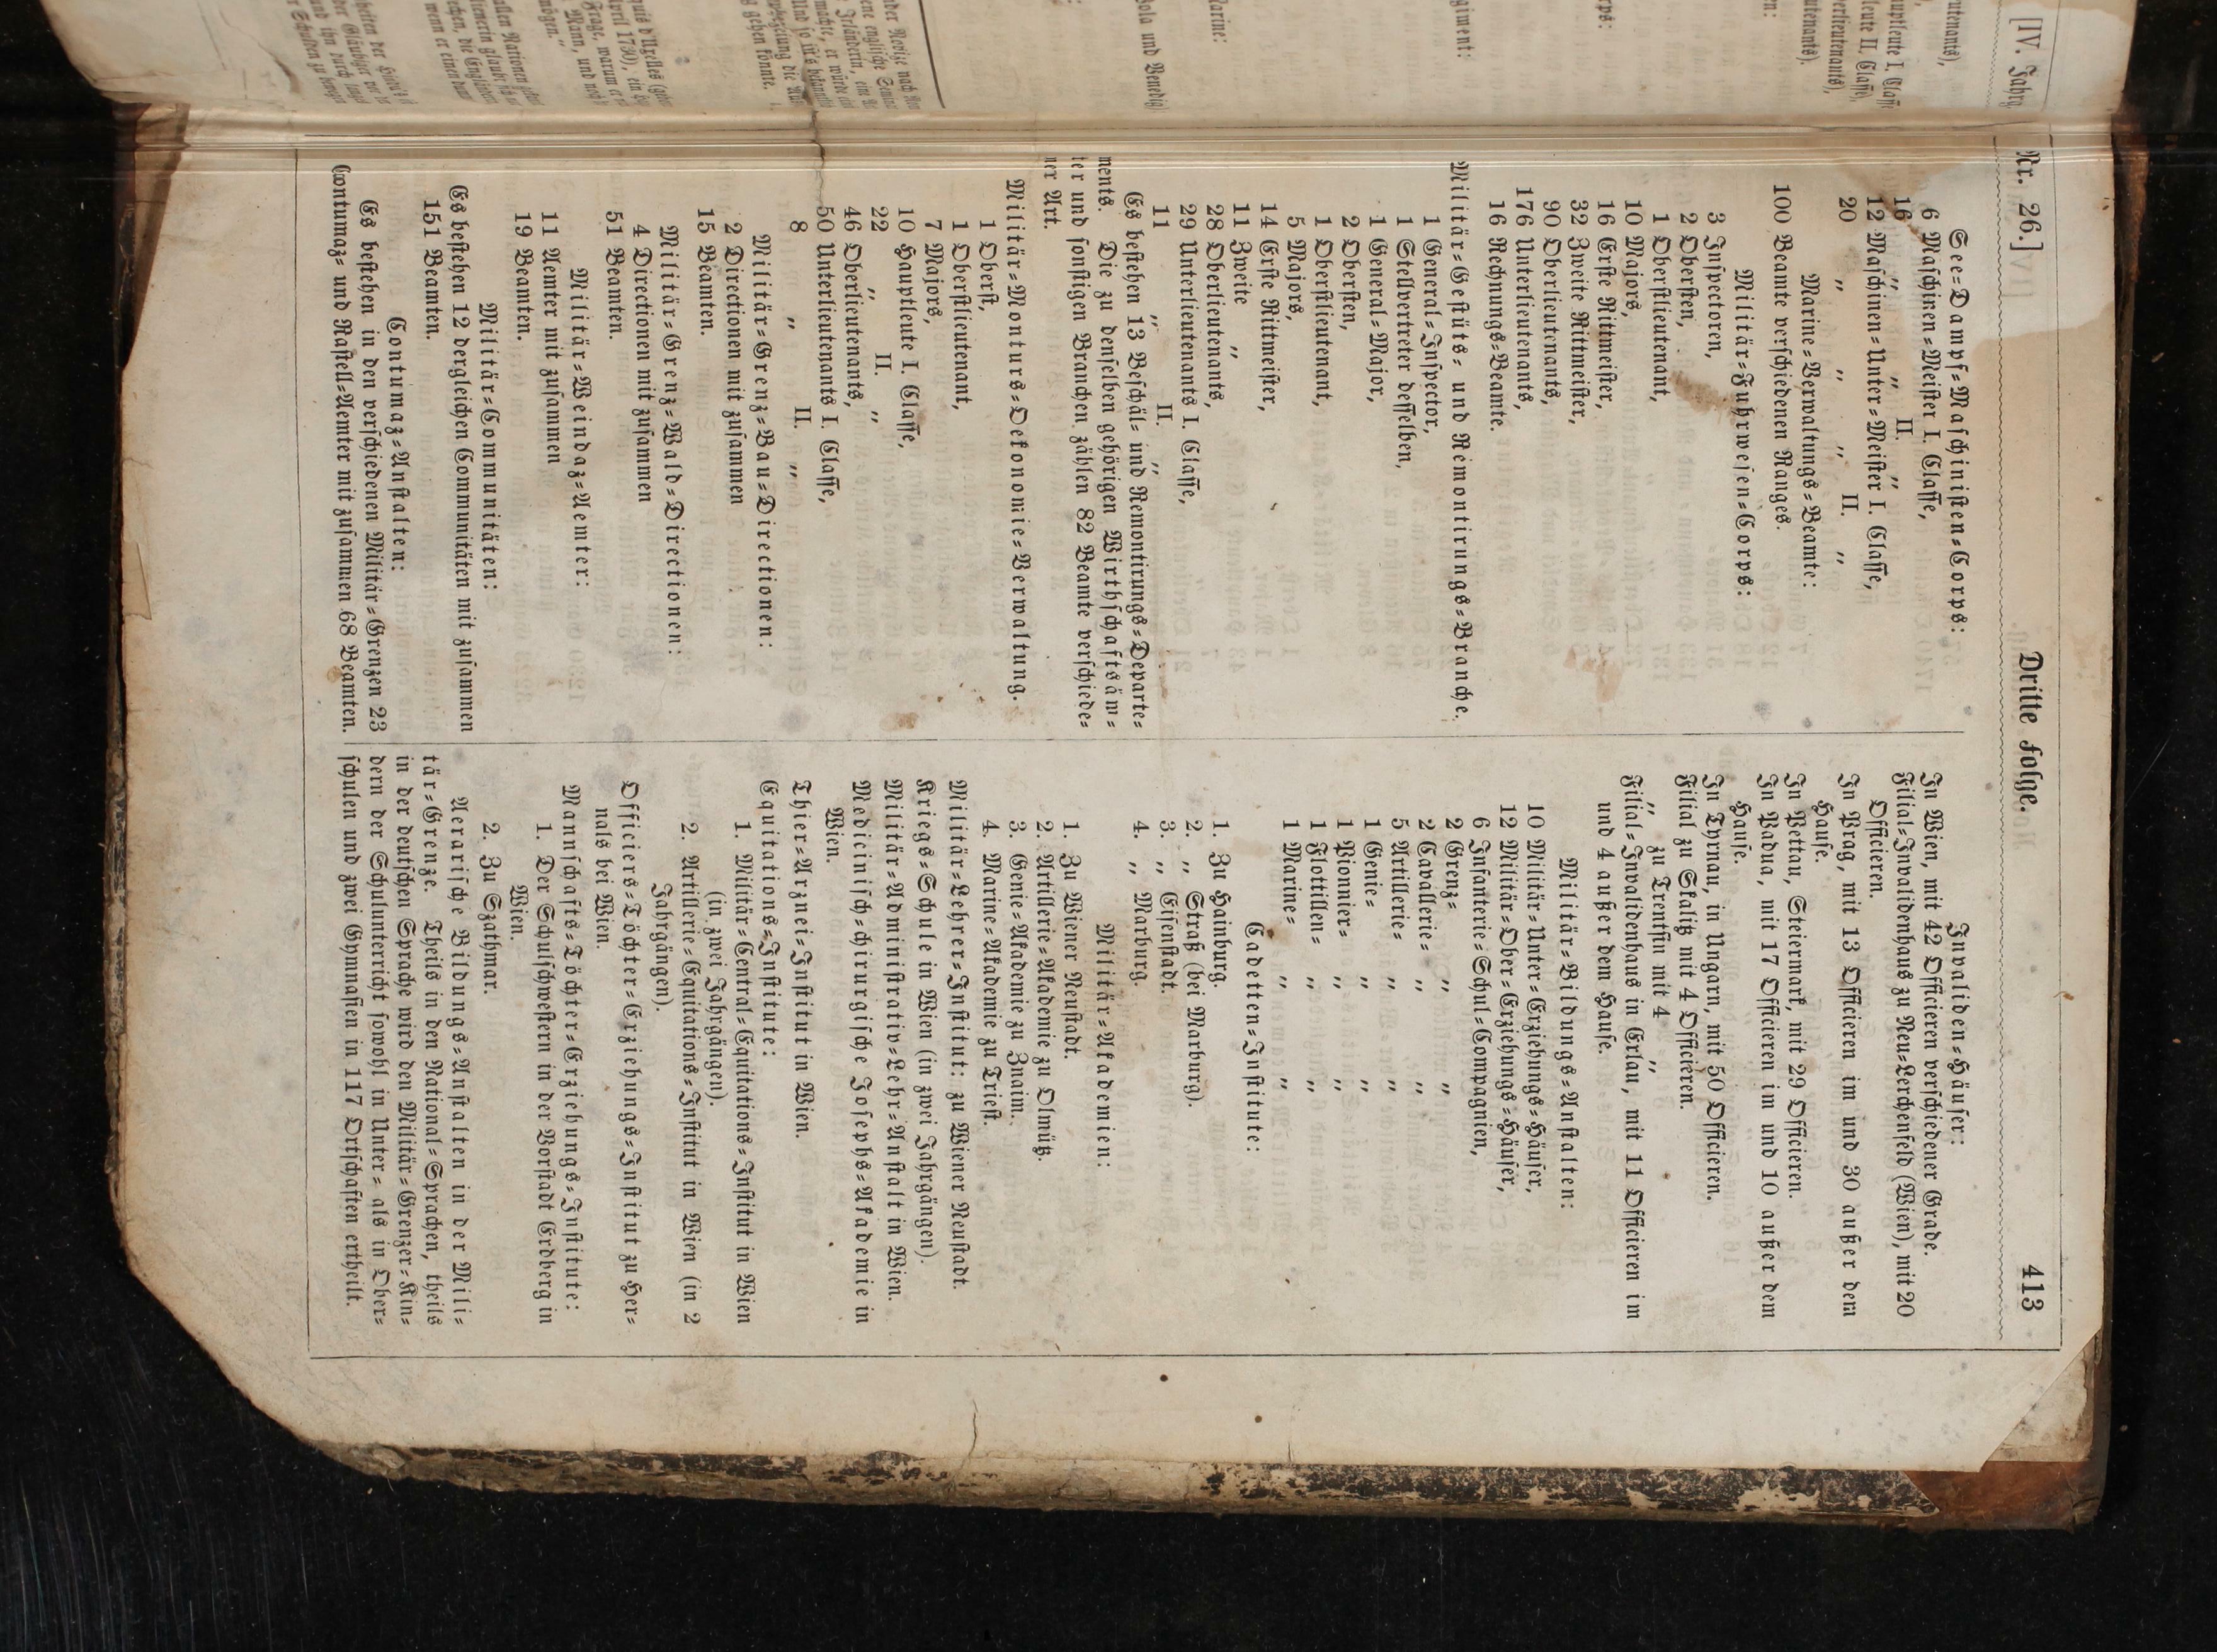 Nr. 26.]
Dritte Folge.
413
See=Dampf=Maschinisten=Corps:
6 Maschinen=Meister I. Classe,
16 „ „ II. „
12 Maschinen=Unter=Meister I. Classe,
20 „ „ „ II. „
Marine=Verwaltungs=Beamte:
100 Beamte verschiedenen Ranges.
Militär=Fuhrwesen=Corps:
3 Inspectoren,
2 Obersten,
1 Oberstlieutenant,
10 Majors,
16 Erste Rittmeister,
32 Zweite Rittmeister,
90 Oberlieutenants,
176 Unterlieutenants,
16 Rechnungs=Beamte.
Militär=Gestüts= und Remontirungs=Branche.
1 General=Inspector,
1 Stellvertreter desselben,
1 General=Major,
2 Obersten,
1 Oberstlieutenant,
5 Majors,
14 Erste Rittmeister,
11 Zweite „
28 Oberlieutenants,
29 Unterlieutenants I. Classe,
11 „ II. „
Es bestehen 13 Beschäl= und Remontirungs=Departe=
ments. Die zu denselben gehörigen Wirthschaftsäm=
ter und sonstigen Branchen zählen 82 Beamte verschiede=
ner Art.
Militär=Monturs=Oekonomie=Verwaltung.
1 Oberst,
1 Oberstlieutenant,
7 Majors,
10 Hauptleute I. Classe,
22 „ II. „
46 Oberlieutenants,
50 Unterlieutenants I. Classe,
8 „ II. „
Militär=Grenz=Bau=Directionen:
2 Directionen mit zusammen
15 Beamten.
Militär=Grenz=Wald=Directionen:
4 Directionen mit zusammen
51 Beamten.
Militär=Weindaz=Aemter:
11 Aemter mit zusammen
19 Beamten.
Militär=Communitäten:
Es bestehen 12 dergleichen Communitäten mit zusammen
151 Beamten.
Contumaz=Anstalten:
Es bestehen in den verschiedenen Militär=Grenzen 23
Contumaz= und Rastell=Aemter mit zusammen 68 Beamten.
Invaliden=Häuser:
In Wien, mit 42 Officieren verschiedener Grade.
Filial=Invalidenhaus zu Neu=Lerchenfeld (Wien), mit 20
Officieren.
In Prag, mit 13 Officieren im und 30 außer dem
Hause.
In Pettau, Steiermark, mit 29 Officieren.
In Padua, mit 17 Officieren im und 10 außer dem
Hause.
In Tyrnau, in Ungarn, mit 50 Officieren.
Filial zu Skalitz mit 4 Officieren.
„ zu Trentsin mit 4 „
Filial=Invalidenhaus in Erlau, mit 11 Officieren im
und 4 außer dem Hause.
Militär=Bildungs=Anstalten:
10 Militär=Unter=Erziehungs=Häuser,
12 Militär=Ober=Erziehungs=Häuser,
6 Infanterie=Schul=Compagnien,
2 Grenz= „ „
2 Cavallerie= „ „
5 Artillerie= „ „
1 Genie= „ „
1 Pionnier= „ „
1 Flottillen= „ „
1 Marine= „ „
Cadetten=Institute:
1. Zu Hainburg.
2. „ Straß (bei Marburg).
3. „ Eisenstadt.
4. „ Marburg.
Militär=Akademien:
1. Zu Wiener Neustadt.
2. Artillerie=Akademie zu Olmütz.
3. Genie=Akademie zu Znaim.
4. Marine=Akademie zu Triest.
Militär=Lehrer=Institut: zu Wiener Neustadt.
Kriegs=Schule in Wien (in zwei Jahrgängen).
Militär=Administrativ=Lehr=Anstalt in Wien.
Medicinisch=chirurgische Josephs=Akademie in
Wien.
Thier=Arznei=Institut in Wien.
Equitations=Institute:
1. Militär=Central=Equitations=Institut in Wien
(in zwei Jahrgängen).
2. Artillerie=Equitations=Institut in Wien (in 2
Jahrgängen).
Officiers=Töchter=Erziehungs=Institut zu Her=
nals bei Wien.
Mannschafts=Töchter=Erziehungs=Institute:
1. Der Schulschwestern in der Vorstadt Erdberg in
Wien.
2. Zu Szathmar.
Aerarische Bildungs=Anstalten in der Mili=
tär=Grenze. Theils in den National=Sprachen, theils
in der deutschen Sprache wird den Militär=Grenzer=Kin=
dern der Schulunterricht sowohl in Unter= als in Ober=
schulen und zwei Gymnasien in 117 Ortschaften ertheilt.
[IV. Jahrg.